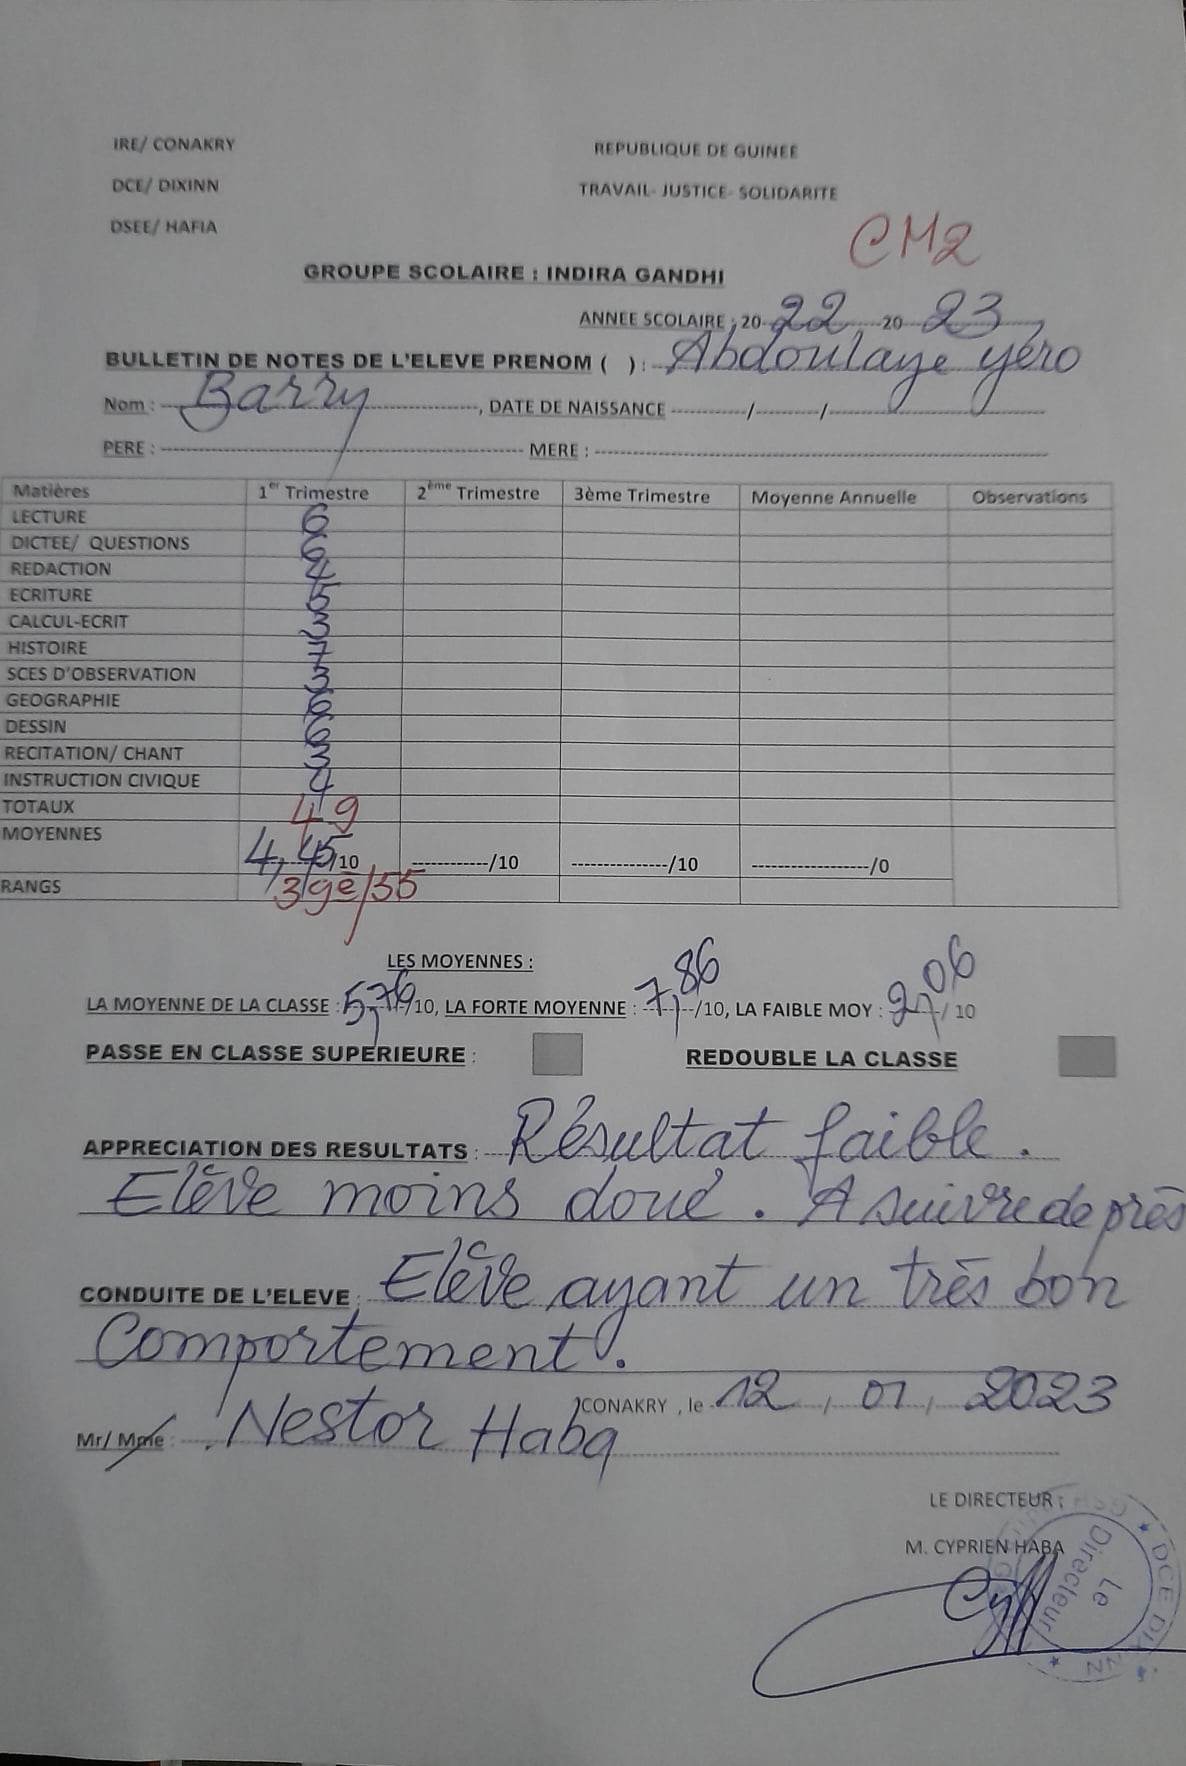 IRE/ CONAKRY
REPUBLIQUE DE GUINEE
DCE/ DIXINN
TRAVAIL- JUSTICE- SOLIDARITE
DSEE/ HAFIA
CM2
GROUPE SCOLAIRE : INDIRA GANDHI
ANNEE SCOLAIRE ; 20 22, 20 23
BULLETIN DE NOTES DE L'ELEVE PRENOM ( ) : Abdoulaye yéro
Nom : Barry, DATE DE NAISSANCE ------------/----------/
PERE : MERE :
Matières 1er Trimestre 2ème Trimestre 3ème Trimestre Moyenne Annuelle Observations
LECTURE 6
DICTEE/ QUESTIONS 6
REDACTION 4
ECRITURE 5
CALCUL-ECRIT 3
HISTOIRE 7
SCES D'OBSERVATION 3
GEOGRAPHIE 6
DESSIN 6
RECITATION/ CHANT 3
INSTRUCTION CIVIQUE 4
TOTAUX 49
MOYENNES 4,45/10 ------------/10 ---------------/10 ------------------/0
RANGS 39è/55
LES MOYENNES :
LA MOYENNE DE LA CLASSE : 5,76/10, LA FORTE MOYENNE : 7,86/10, LA FAIBLE MOY : 2,06/ 10
PASSE EN CLASSE SUPERIEURE : REDOUBLE LA CLASSE
APPRECIATION DES RESULTATS : Résultat faible.
Elève moins doué. A suivre de près
CONDUITE DE L'ELEVE : Elève ayant un très bon
Comportement.
CONAKRY , le 12, 01, 2023
Mr/ Mme : Nestor Haba
LE DIRECTEUR :
M. CYPRIEN HABA
Le Directeur
DCE DIXINN